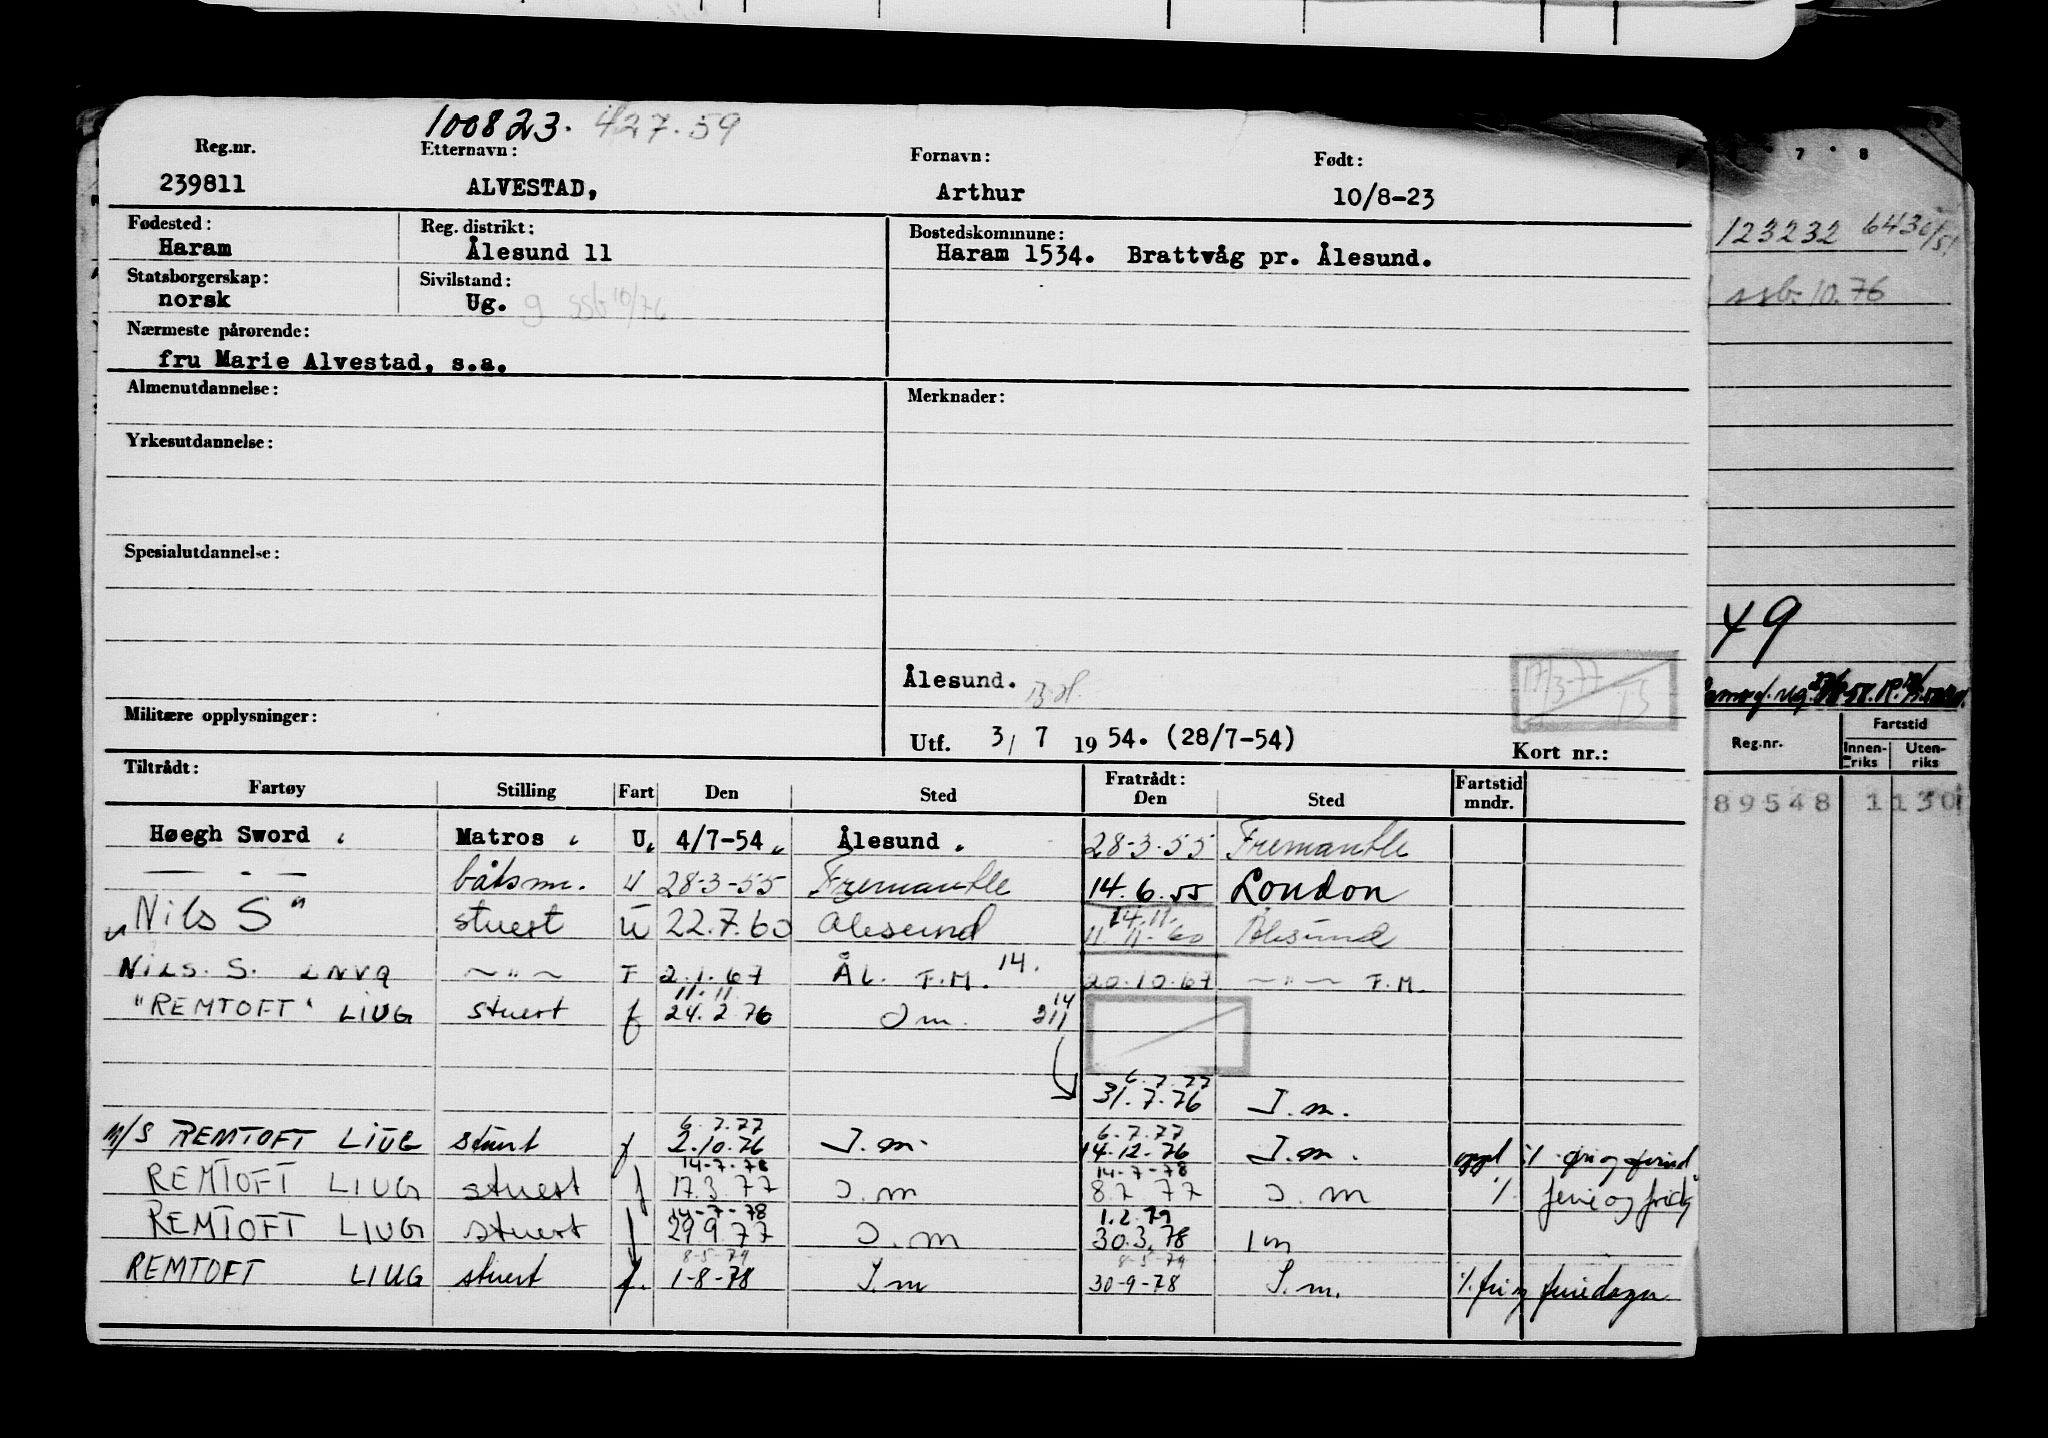 100823. 427.59
Reg.nr. Etternavn: Fornavn: Født:
239811 ALVESTAD, Arthur 10/8-23
Fødested: Reg. distrikt: Bostedskommune:
Haram Ålesund 11 Haram 1534. Brattvåg pr. Ålesund.
Statsborgerskap: Sivilstand:
norsk Ug. g ssb 10/76
Nærmeste pårørende:
fru Marie Alvestad, s.a.
Almenutdannelse: Merknader:
Yrkesutdannelse:
Spesialutdannelse:
Ålesund.
17/3-77
Militære opplysninger:
Utf. 3/ 7 1954. (28/7-54) Kort nr.:
Tiltrådt: Fratrådt: Fartstid
Fartøy Stilling Fart Den Sted Den Sted mndr.
Høegh Sword Matros U. 4/7-54 Ålesund 28-3-55 Fremantle
— " — båtsm. U 28-3-55 Fremantle 14.6.55 London
"Nils S" stuert U 22.7.60 Ålesund 14.11. 11.11.60 Ålesund
NILS. S. LNVQ ~ " ~ F 2.1.67 ÅL. F.M. 14. 20.10.67 ~ " ~ F.M.
11.11
"REMTOFT" LIUG stuert f 24.2.76 I m. 14
6.7.77
31.7.76 I.m.
6.7.77 6.7.77
M/S REMTOFT LIUG stuert f 2.10.76 I.m. 14.12.76 I.m.
14-7-78 14-7-78
REMTOFT LIUG stuert f 17.3.77 I.m 8.7.77 I.m % ferie og frid
14-7-78 1.2.79
REMTOFT LIUG stuert f 29.9.77 I.m 30.3.78 Im
8-5-79 8-5-79
REMTOFT LIUG stuert f. 1-8-78 I.m 30-9-78 I.m. % fri og feriedager
7 8
123232 6436/51
ssb. 10.76
49
Fartstid
Reg.nr. Innen-riks Uten-riks
89548 1130